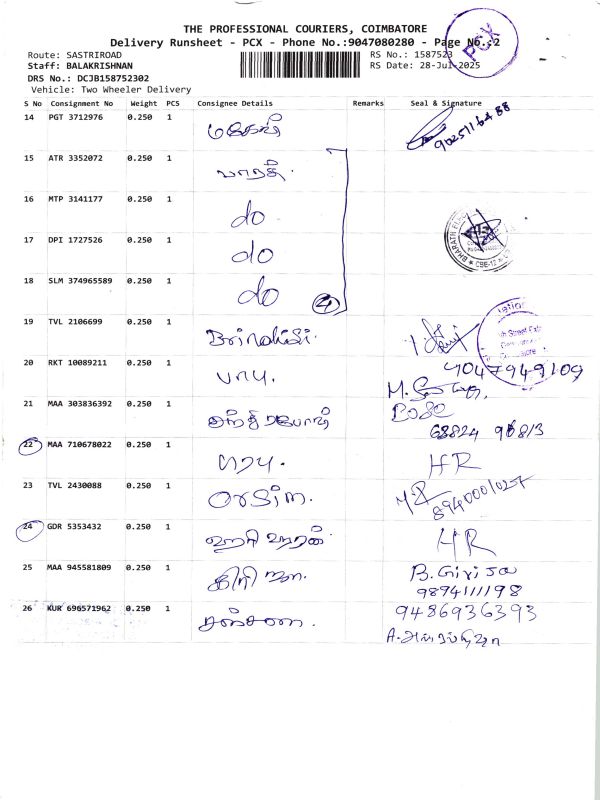 THE PROFESSIONAL COURIERS, COIMBATORE
Delivery Runsheet - PCX - Phone No.:9047080280 - Page No.:2
Route: SASTRIROAD RS No.: 1587523
Staff: BALAKRISHNAN RS Date: 28-Jul-2025
DRS No.: DCJB158752302
Vehicle: Two Wheeler Delivery
PCX
S No Consignment No Weight PCS Consignee Details Remarks Seal & Signature
14 PGT 3712976 0.250 1 மகேஷ் 9025116488
15 ATR 3352072 0.250 1 பாரதி
16 MTP 3141177 0.250 1 do
17 DPI 1727526 0.250 1 do
18 SLM 374965589 0.250 1 do 4
19 TVL 2106699 0.250 1
20 RKT 10089211 0.250 1 பாபு. 9047949109
21 MAA 303836392 0.250 1 சந்திரபோஸ் Bose
22 MAA 710678022 0.250 1 பிரபு. HR
23 TVL 2430088 0.250 1 8940001027
24 GDR 5353432 0.250 1 ஹரி ஹரன் HR
25 MAA 945581809 0.250 1 கிரிஜா. B. Girija
9894111198
26 KUR 696571962 0.250 1 9486936393